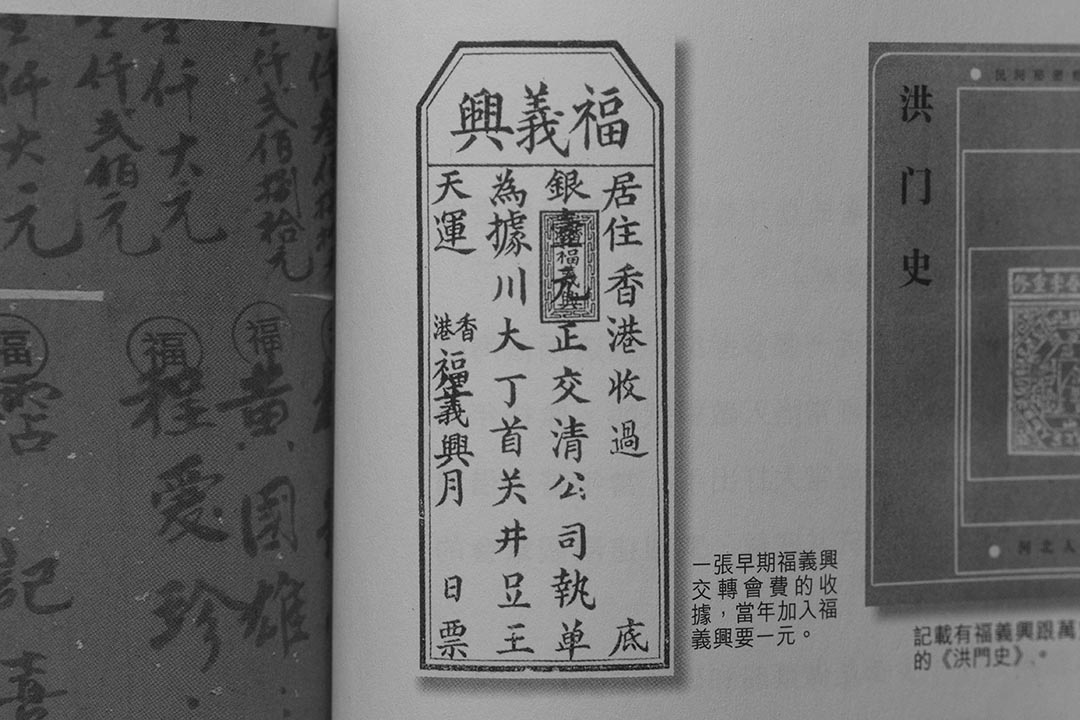 仟大元
仟貳佰元
仟大元
仟貳佰捌拾元
福
記
福
程愛珍
福
黄国雄
福義興
居住香港收過 底
銀壹元正交清公司執单
福義興
為據川大丁首关井豆王
天運 香港福義興 月 日票
一張早期福義興
交轉會費的收
據，當年加入福
義興要一元。
洪门史
河北人
記載有福義興跟萬
的《洪門史》。